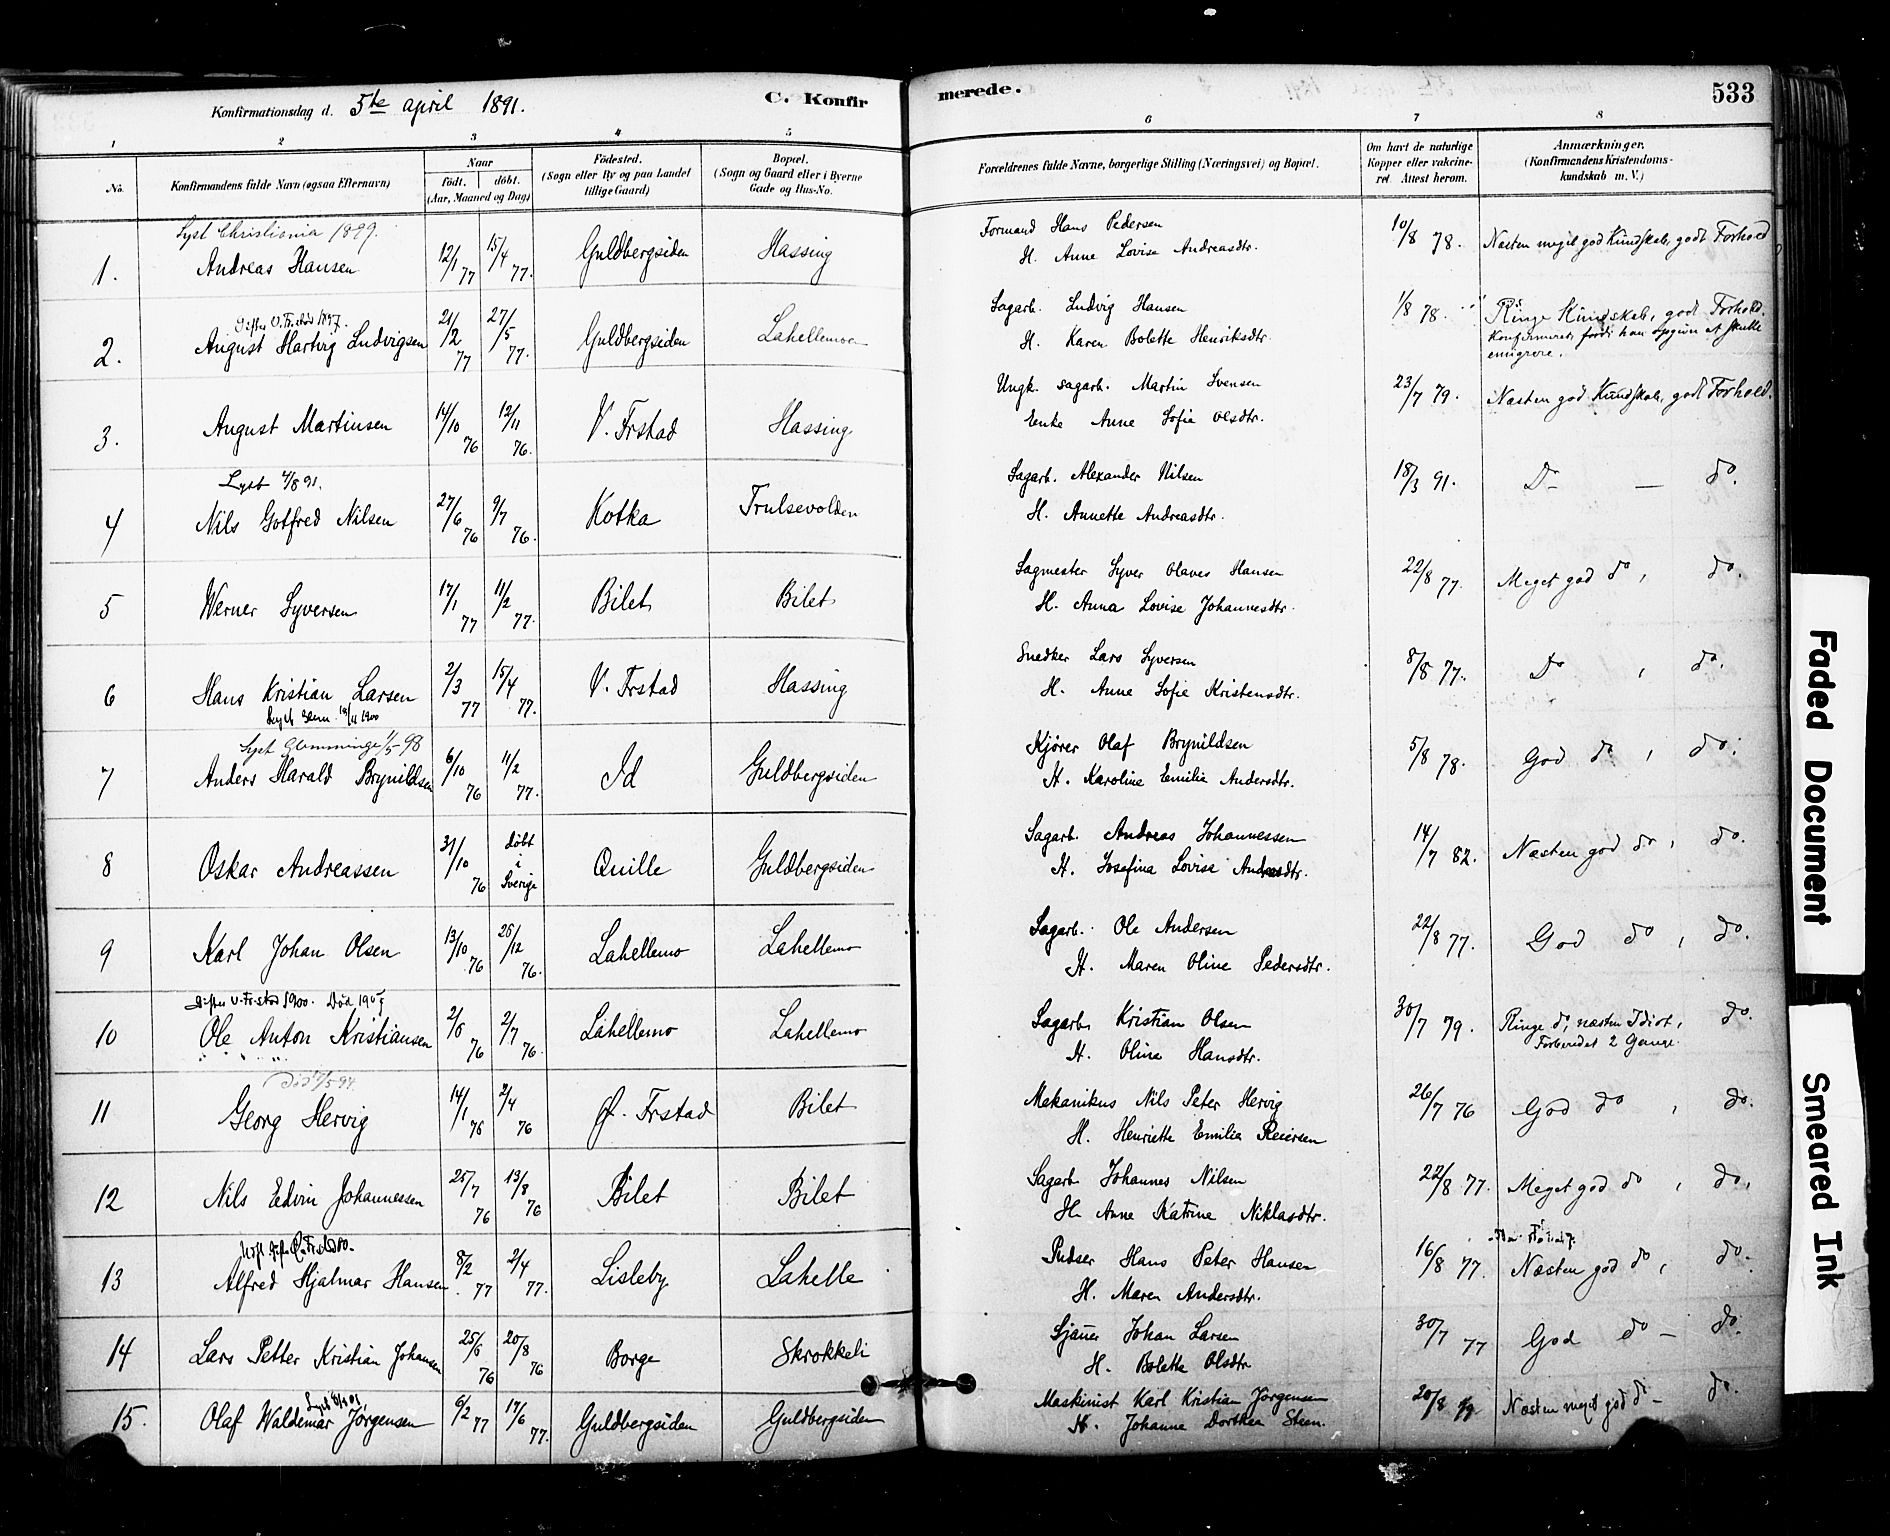 Konfirmationsdag d. 5te april 1891.
C. Konfirmerede.
533
1 2 3 4 5 6 7 8
No.
Konfirmandens fulde Navn (ogsaa Efternavn)
Naar
födt. döbt.
(Aar, Maaned og Dag)
Födested.
(Sogn eller By og paa Landet
tillige Gaard)
Bopæl.
(Sogn og Gaard eller i Byerne
Gade og Hus-No.
Forældrenes fulde Navne, borgerlige Stilling (Næringsvei) og Bopæl.
Om havt de naturlige
Kopper eller vakcine-
ret Attest herom.
Anmærkninger.
(Konfirmandens Kristendoms-
kundskab m. V.)
Lyst Christiania 1899.
1. Andreas Hansen 12/1 77 15/4 77. Guldbergsiden Hassing Formand Hans Pedersen 10/8 78. Næsten meget god Kundskab, godt Forhold
H. Anne Lovise Andreasdtr.
V. Frstad 1897.
2. August Hartvig Ludvigsen 21/2 77 27/5 77. Guldbergsiden Lahellemoen Sagarb. Ludvig Hansen 1/8 78. Ringe Kundskab, godt Forhold.
H. Karen Bolette Henriksdtr. Konfirmeret, fordi han opgive at skulle
emigrere.
3. August Martinsen 14/10 76 12/11 76. V. Frstad Hassing Ungk. sagarb. Martin Svensen 23/7 79. Næsten god Kundskab, godt Forhold.
Enke Anne Sofie Olsdtr.
Lyst 4/8 91.
4 Nils Gotfred Nilsen 27/6 76 9/7 76. Kotka Trulsevolden Sagarb. Alexander Nilsen 18/3 91. Do — do.
H. Annette Andreasdtr.
5 Werner Syversen 17/1 77 11/2 77. Bilet Bilet Sagmester Syver Olaves Hansen 22/8 77. Meget god do, do.
H. Anna Lovise Johannesdtr.
6 Hans Kristian Larsen 2/3 77 15/4 77. V. Frstad Hassing Snedker Lars Syversen 8/8 77. Do, do.
H. Anne Sofie Kristensdtr.
1900
Lyst Glemminge 1/5-98
7 Anders Harald Brynildsen 6/10 76 11/2 77. Id Guldbergsiden Kjører Olaf Brynildsen 5/8 78. God do, do.
H. Karoline Emilie Andersdtr.
8 Oskar Andreassen 31/10 76 døbt i Sverige Quille Guldbergsiden Sagarb. Andreas Johannessen 14/7 82. Næsten god do, do.
H. Josefina Lovise Andreasdtr.
9 Karl Johan Olsen 13/10 76 26/12 76. Lahellemo Lahellemo Sagarb. Ole Andersen 22/8 77. God do, do.
H. Maren Oline Pedersdtr.
V. Frstad 1900. Død 1907
10 Ole Anton Kristiansen 2/6 76 2/7 76. Lahellemo Lahellemo Sagarb. Kristian Olsen 30/7 79. Ringe do, næsten Idiot, do.
H. Oline Hansdtr. Forberedet 2 Gange.
Død /5 97.
11 Georg Hervig 14/1 76 2/4 76 Ø. Frstad Bilet Mekanikus Nils Peter Hervig 26/7 76 God do, do.
H. Henriette Emilie Reiersen
12 Nils Edvin Johannessen 25/7 76 13/8 76 Bilet Bilet Sagarb. Johannes Nilsen 22/8 77. Meget god do, do,
H. Anne Katrine Niklasdtr.
13 Alfred Hjalmar Hansen 8/2 77 2/4 77. Lisleby Lahelle Pudser Hans Peter Hansen 16/8 77. Næsten god do, do.
H. Maren Andersdtr.
14 Lars Petter Kristian Johansen 25/6 76 20/8 76 Borge Skrokkeli Sjauer Johan Larsen 30/7 77 God do - do.
H. Bolette Olsdtr
15. Olaf Waldemar Jørgensen 6/2 77 17/6 77. Guldbergsiden Guldbergsiden Maskinist Karl Kristian Jørgensen 20/8 Næsten meget god do - do.
H. Johanne Dorthea Steen.
Faded Document
Smeared Ink